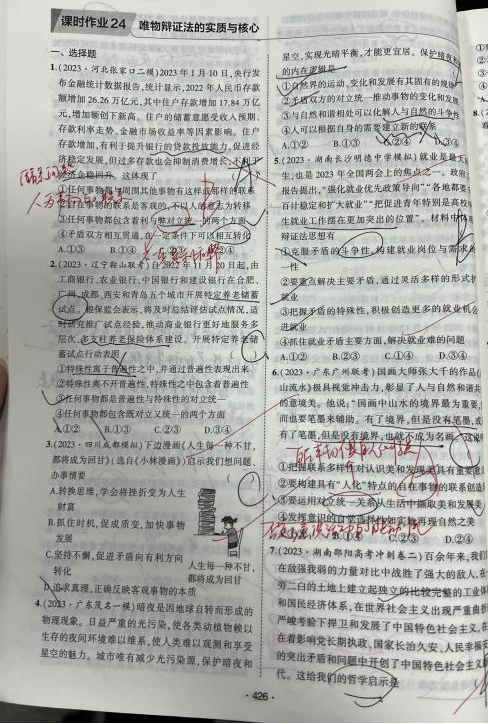 课时作业24 唯物辩证法的实质与核心
一、选择题
1.(2023·河北张家口二模)2023年1月10日,央行发
布金融统计数据报告,统计显示,2022年人民币存款
额增加26.26万亿元,其中住户存款增加17.84万亿
元,增加额创下新高。住户的储蓄意愿受收入预期、
存款利率走势、金融市场收益率等因素影响。住户
存款增加,有利于提升银行的贷款投放能力,促进经
济稳定发展,但过多存款也会抑制消费增长,不利于
经济企稳回升。这体现了
①任何事物都与周围其他事物有这样或那样的联系
②任何事物的联系是客观的,不以人的意志为转移
③任何事物都包含着利与弊对立统一的两个方面
④矛盾双方相互贯通,在一定条件下可以相互转化
A.①③ B.①④ C.②③ D.②④
2.(2023·辽宁鞍山联考)自2022年11月20日起,由
工商银行、农业银行、中国银行和建设银行在合肥、
广州、成都、西安和青岛五个城市开展特定养老储蓄
试点。银保监会表示,将及时总结评估试点情况,适
时研究推广试点经验,推动商业银行更好地服务多
层次、多支柱养老保险体系建设。开展特定养老储
蓄试点行动表明
①特殊性寓于普遍性之中,并通过普遍性表现出来
②特殊性离不开普遍性,特殊性之中包含着普遍性
③任何事物都是普遍性与特殊性的对立统一
④任何事物都包含既对立又统一的两个方面
A.①② B.①③ C.②③ D.③④
3.(2023·四川成都模拟)下边漫画《人生每一种不甘,
都将成为回甘》(选自《小林漫画》)启示我们想问题、
办事情要
A.转换思维,学会将挫折变为人生
财富
B.抓住时机,促成质变,加快事物
发展
C.坚持不懈,促进矛盾向有利方向
转化
D.追求真理,正确反映客观事物的本质
人生每一种不甘,
都将成为回甘
4.(2023·广东茂名一模)暗夜是因地球自转而形成的
物理现象。日益严重的光污染,使各类动植物赖以
生存的夜间环境难以维系,使人类难以观测和享受
星空的魅力。城市唯有减少光污染源,保护暗夜和
星空,实现光暗平衡,才能更宜居。保护暗夜
的内在逻辑是
①自然界的运动、变化和发展有其固有的规律
②矛盾双方的对立统一推动事物的变化和发展
③与自然和谐相处可以化解人与自然的斗争性
④人可以根据自身的需要建立新的联系
A.①② B.①③ C.②④ D.③④
5.(2023·湖南长沙明德中学模拟)就业是最大
生,也是2023年全国两会上的焦点之一。政府
报告提出,“强化就业优先政策导向”“各地都要
百计稳定和扩大就业”“把促进青年特别是高校
生就业工作摆在更加突出的位置”。材料中
辩证法思想有
①克服矛盾的斗争性,构建就业岗位与需求的
一性
②要重点解决主要矛盾,通过灵活多样的形式扩
就业
③把握矛盾的特殊性,积极创造更多的就业机会
进就业
④抓住就业矛盾主要方面,解决就业难的问题
A.①② B.②③ C.①④ D.③④
6.(2023·广东广州联考)国画大师张大千的作品
山流水》极具视觉冲击力,彰显了人与自然和谐共
的意境美。他说:“国画中山水的境界最为重要,
而也要笔墨来辅助。有了境界,但是没有笔墨,或
有了笔墨,但是没有境界,也就不成为名画。”这说
①把握联系多样性对认识美和发现美具有重要意
②要构建具有“人化”特点的自在事物的联系创造
③要运用对立统一关系从生活中撷取美和发展美
④发挥意识的自觉选择性如实地再现自然之美
A.①② B.①③ C.②④ D.③④
7.(2023·湖南邵阳高考冲刺卷二)百余年来,我们
在敌强我弱的力量对比中战胜了强大的敌人,在
穷二白的土地上建立起独立的比较完整的工业体
和国民经济体系,在世界社会主义出现严重曲折
严峻考验下捍卫和发展了中国特色社会主义,在
在着影响党长期执政、国家长治久安、人民幸福
的突出矛盾和问题中开创了中国特色社会主义
代。这给我们的哲学启示是
·426·